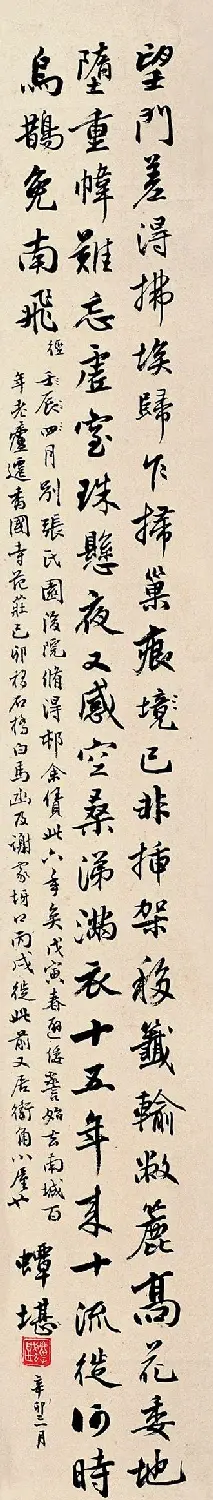 望門差得拂埃歸乍掃巢痕境已非插架移籤輸敝簏高花委地
墮重幃難忘虛室珠懸夜又感空桑涕滿衣十五年來十流徙何時
烏鵲免南飛
徑
壬辰四月別張氏園後院脩得邨余賃此六年矣戊寅春避倭警始去南城百
年老屋遷香國寺范莊己卯移石橋白馬凼及謝家坊口丙戌徙此前又居衙角小屋也
蟫堪
月